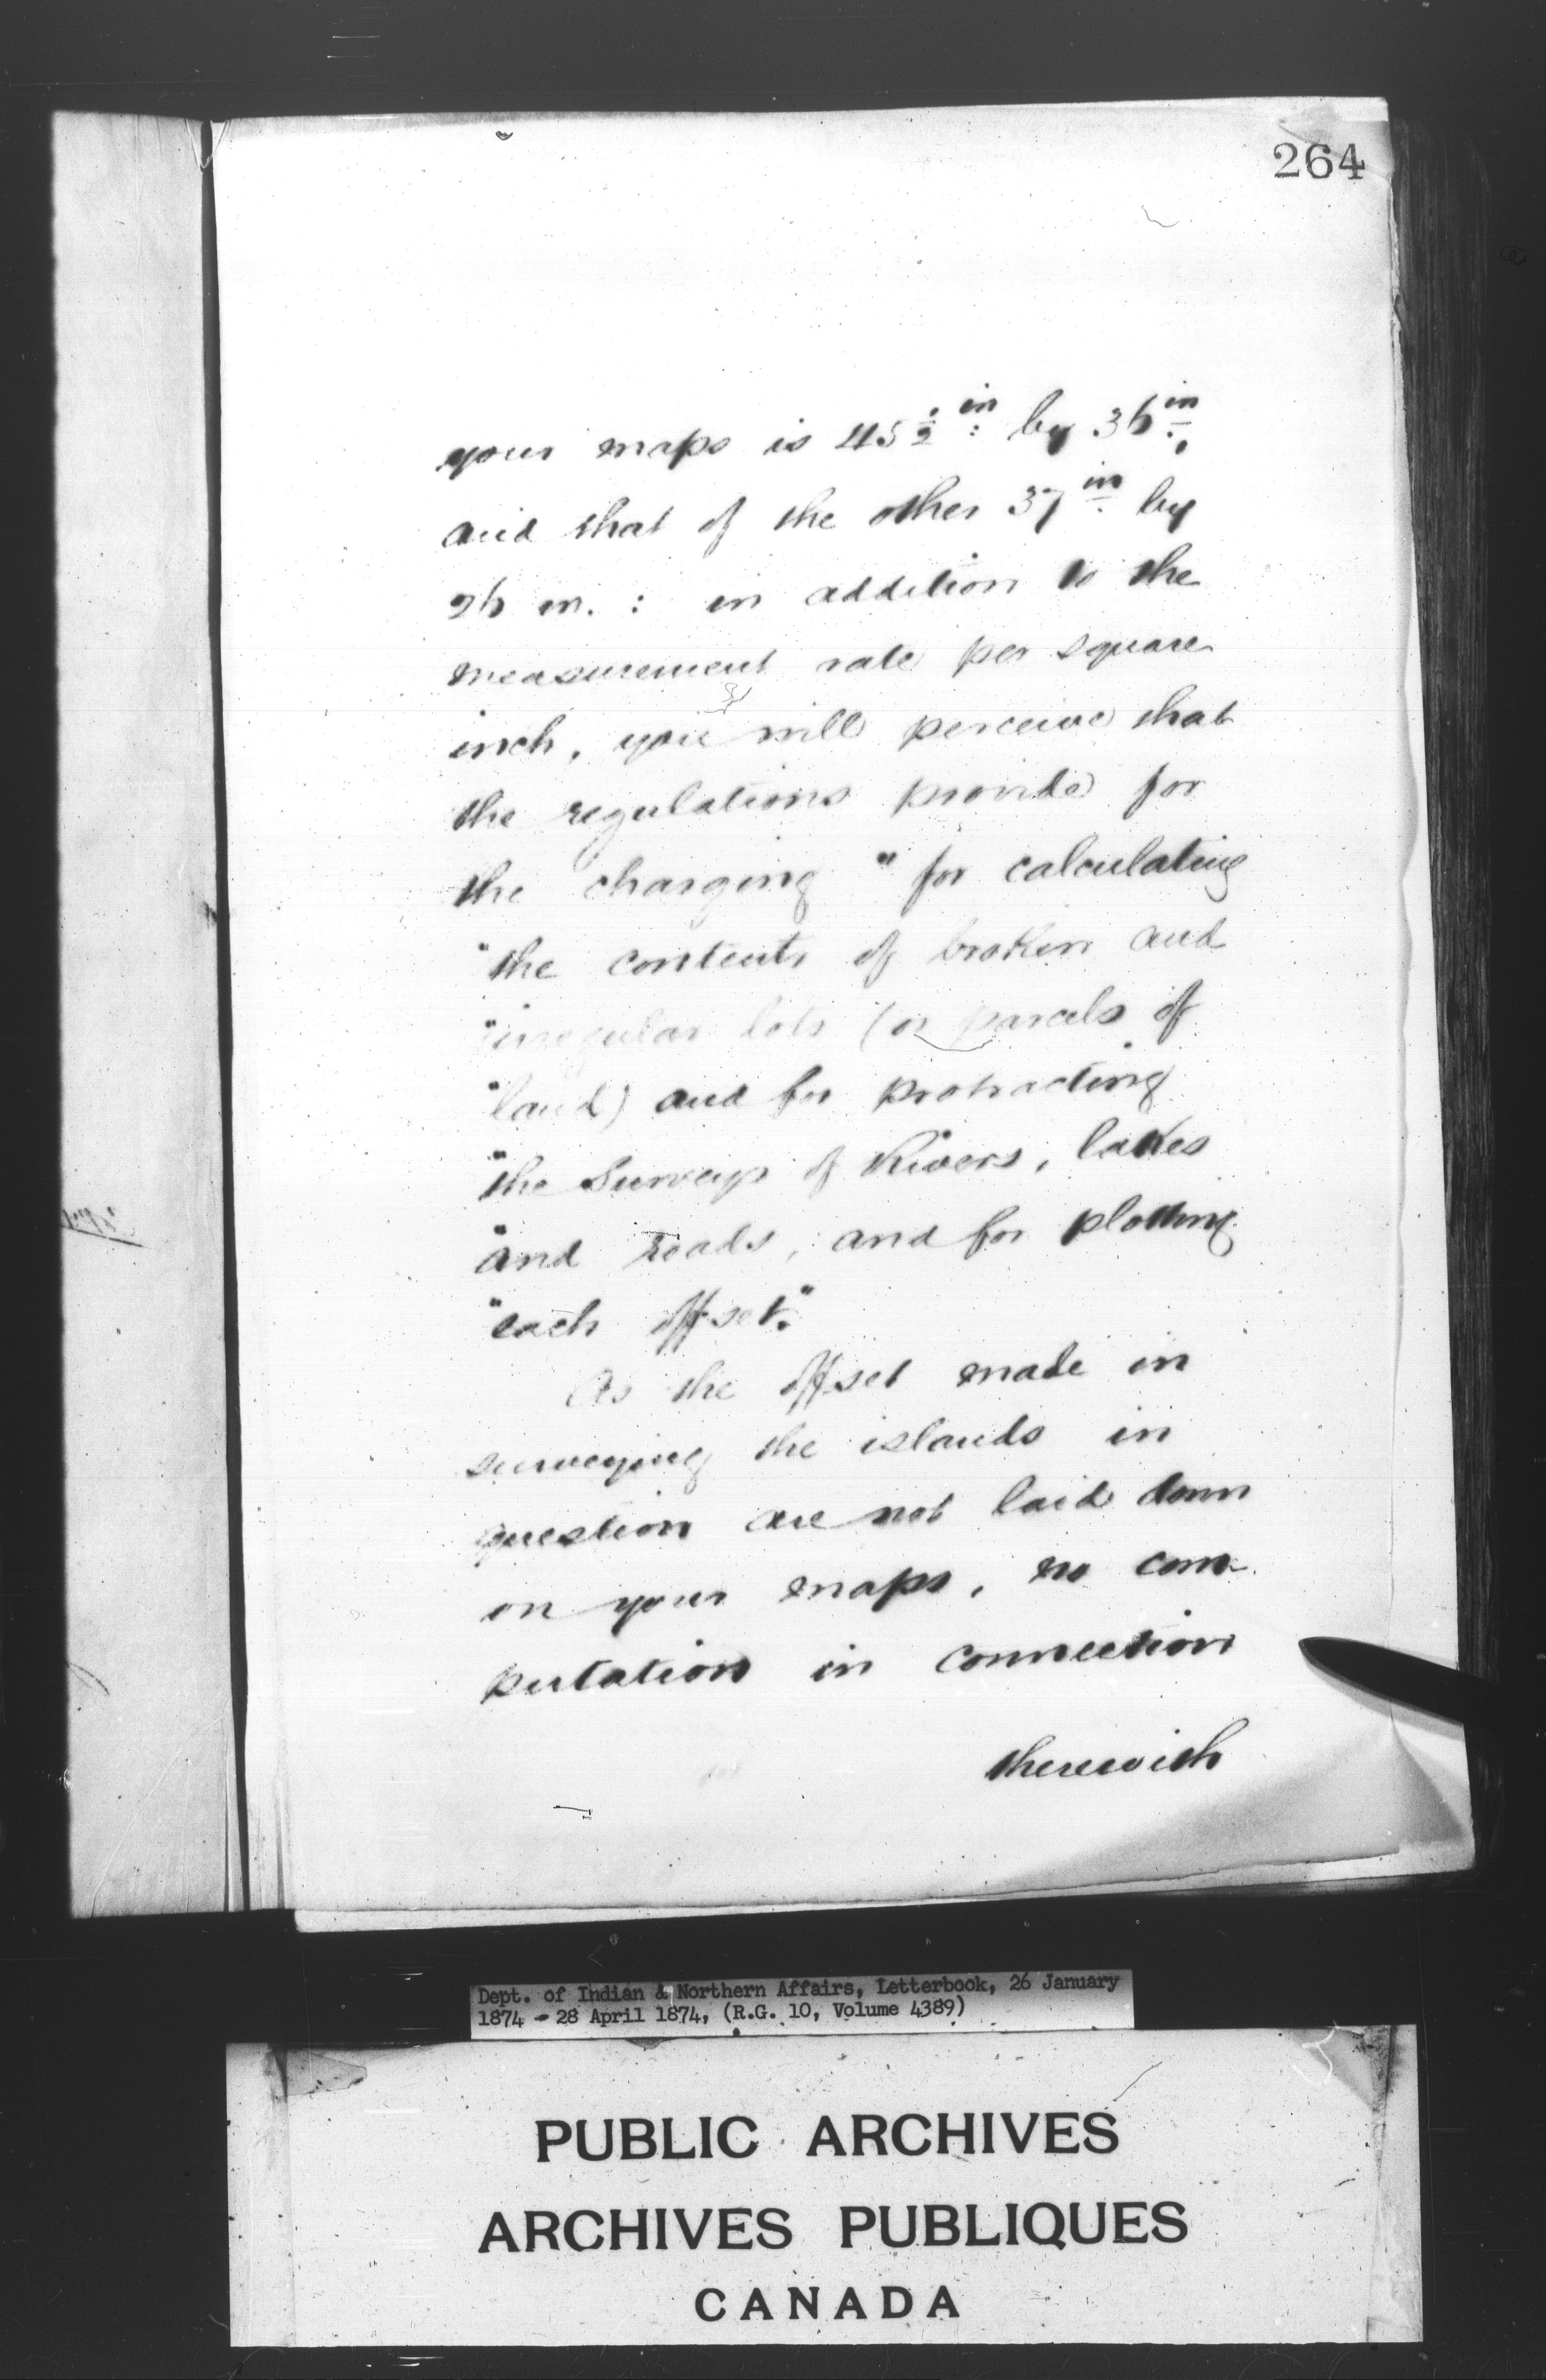 264
your maps is 45 1/2 in: by 36 in.,
and that of the other 37 in. by
26 in. : in addition to the
measurement rate per square
inch, you will perceive that
the regulations provide for
the charging "for calculating
"the contents of broken and
"irregular lots (or parcels of
"land) and for protracting
"the Surveys of Rivers, lakes
"and roads, and for plotting
"each offset."
As the offset made in
surveying the islands in
question are not laid down
on your maps, no com-
putation in connection
therewith
Dept. of Indian & Northern Affairs, Letterbook, 26 January
1874 - 28 April 1874, (R.G. 10, Volume 4389)
PUBLIC ARCHIVES
ARCHIVES PUBLIQUES
CANADA